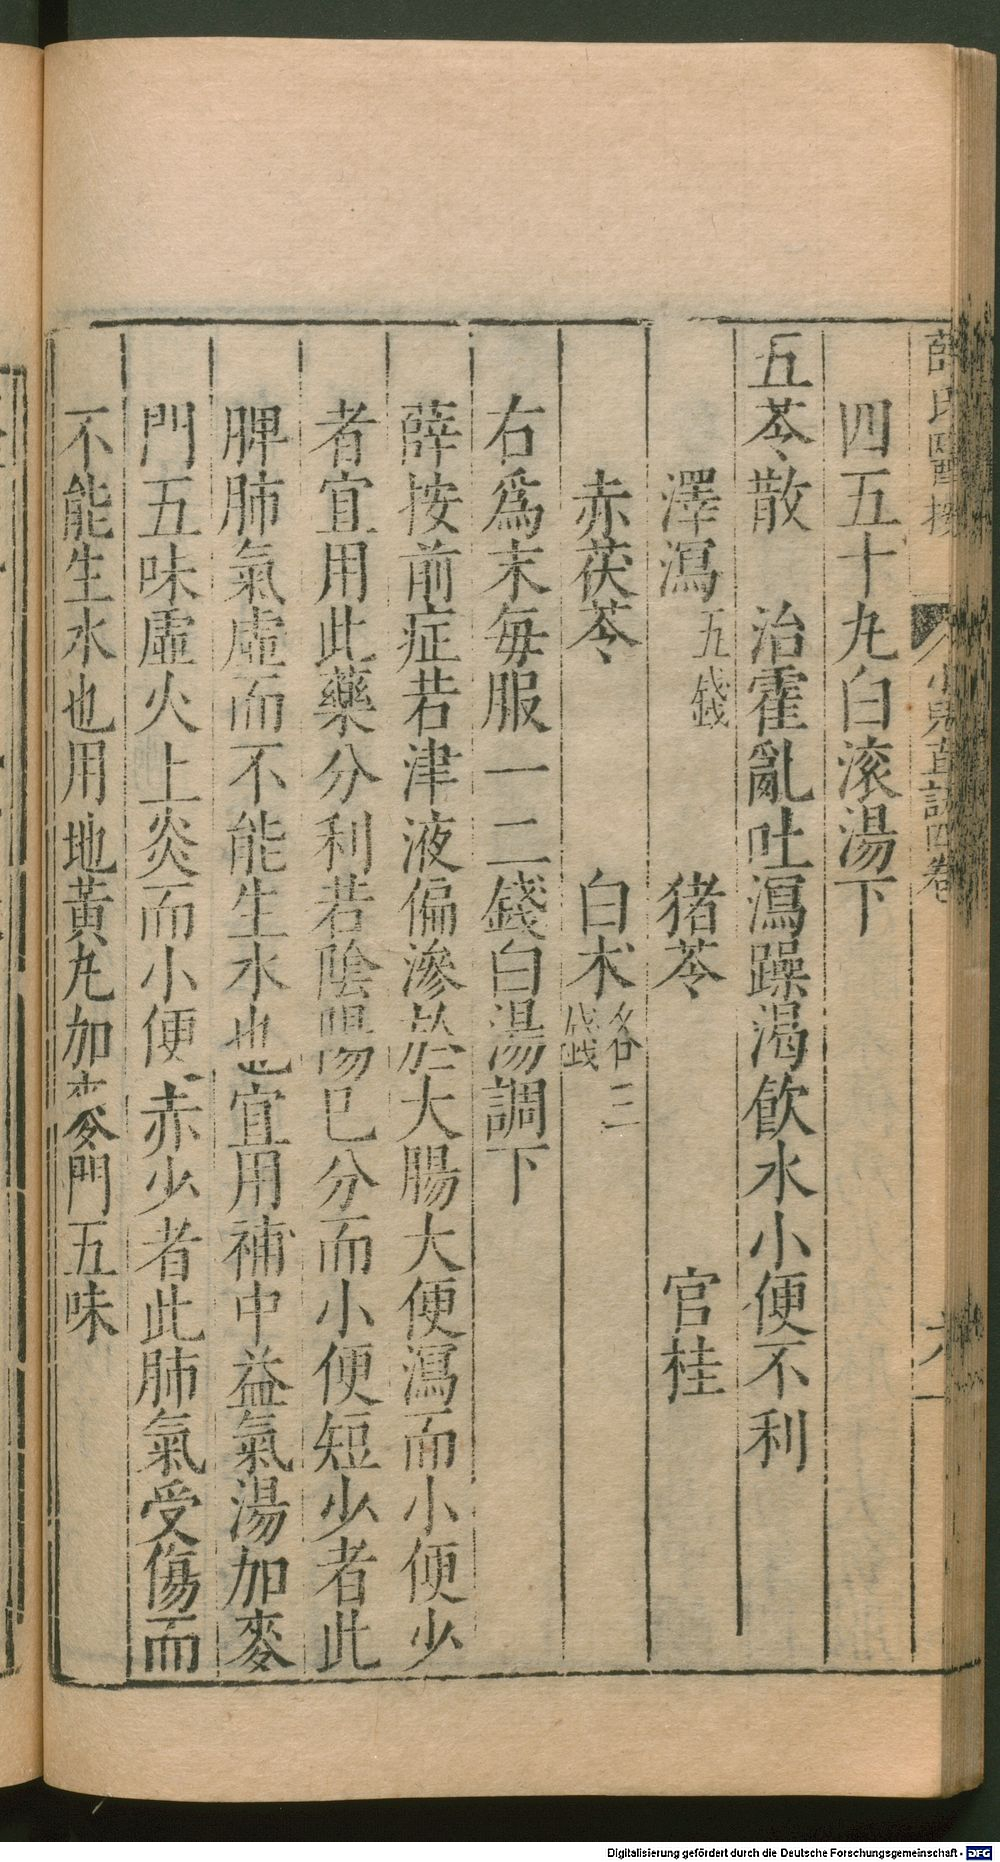 薛氏醫按 小兒直訣四卷 六
四五十丸白滚湯下
五苓散 治霍亂吐瀉躁渴飲水小便不利
澤瀉五錢 猪苓 官桂
赤茯苓 白朮各三錢
右爲末每服一二錢白湯調下
薛按前症若津液偏滲於大腸大便瀉而小便少
者宜用此藥分利若陰陽已分而小便短少者此
脾肺氣虛而不能生水也宜用補中益氣湯加麥
門五味虛火上炎而小便赤少者此肺氣受傷而
不能生水也用地黃丸加麥門五味
Digitalisierung gefördert durch die Deutsche Forschungsgemeinschaft - DFG